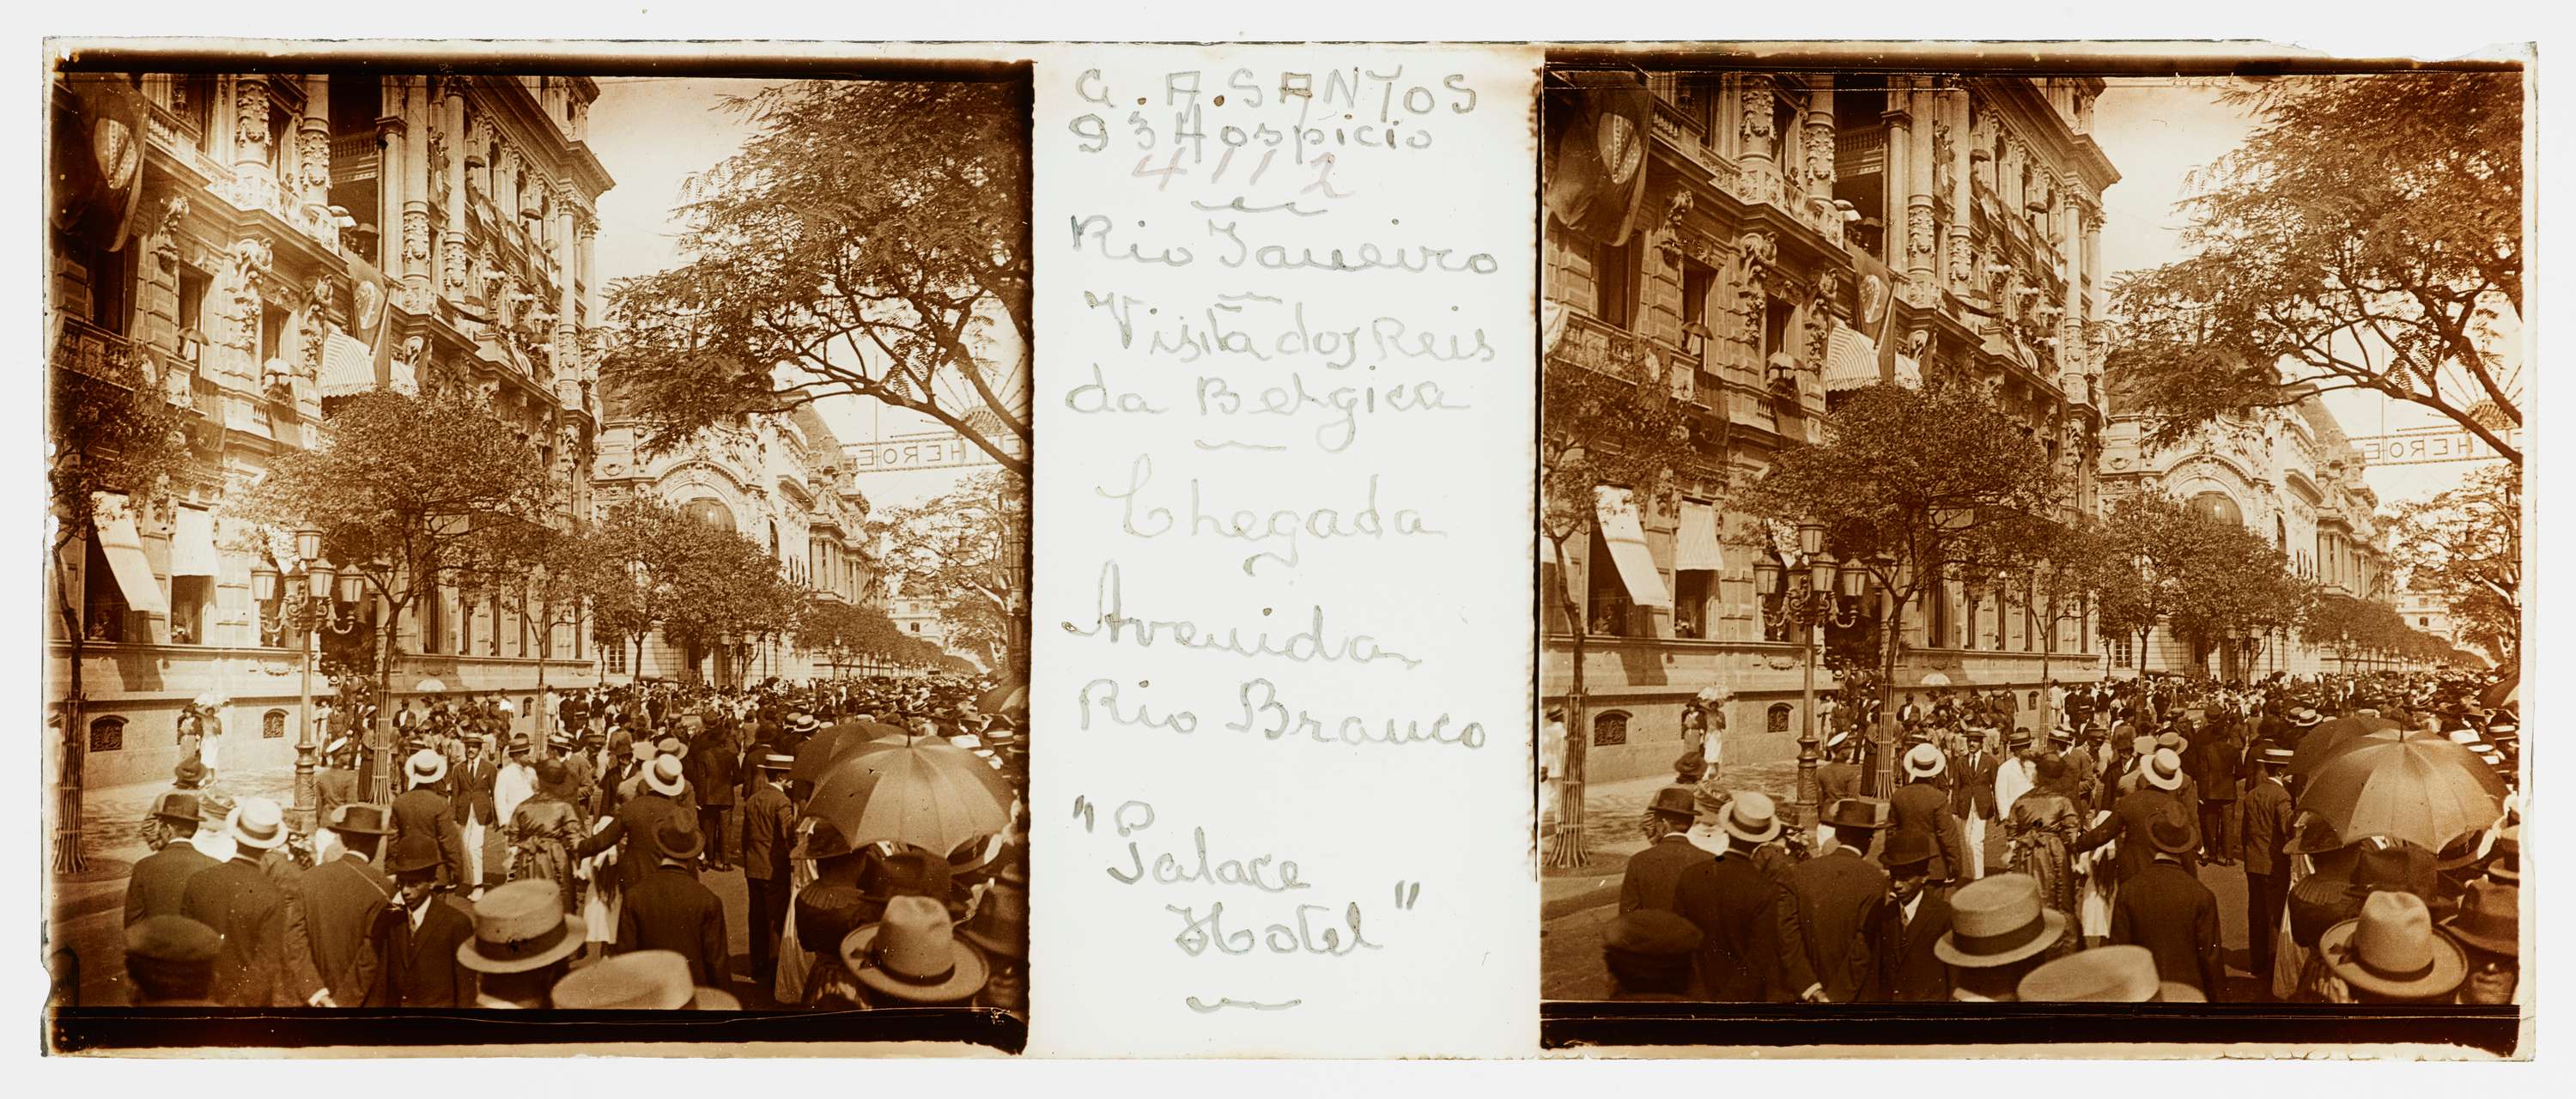 G. A. SANTOS
93 Hospicio
4112
Rio Janeiro
Visita dos Reis
da Belgica
Chegada
Avenida
Rio Branco
"Palace
Hotel"
HEROE
HEROE